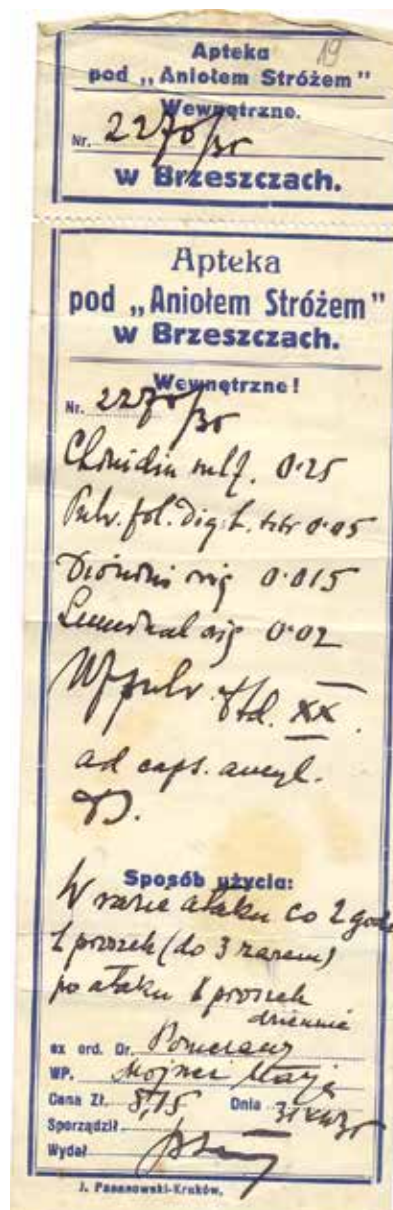 19
Apteka
pod „Aniołem Stróżem”
Wewnętrzne.
Nr. 2270/35
w Brzeszczach.
Apteka
pod „Aniołem Stróżem”
w Brzeszczach.
Wewnętrzne!
Nr. 2270/35
Chinidin sulf. 0.25
Pulv. fol. Dig. t. titr 0.05
Dionini 0.015
Luminal 0.02
Mf pulv. dtd. XX.
ad caps. amyl.
D.
Sposób użycia:
W razie ataku co 2 godz
1 proszek (do 3 razem)
po ataku 1 proszek
dziennie
ex ord. Dr. Pomeranz
WP.
Cena Zł. 8,15 Dnia
Sporządził
Wydał
J. Pasanowski-Kraków.